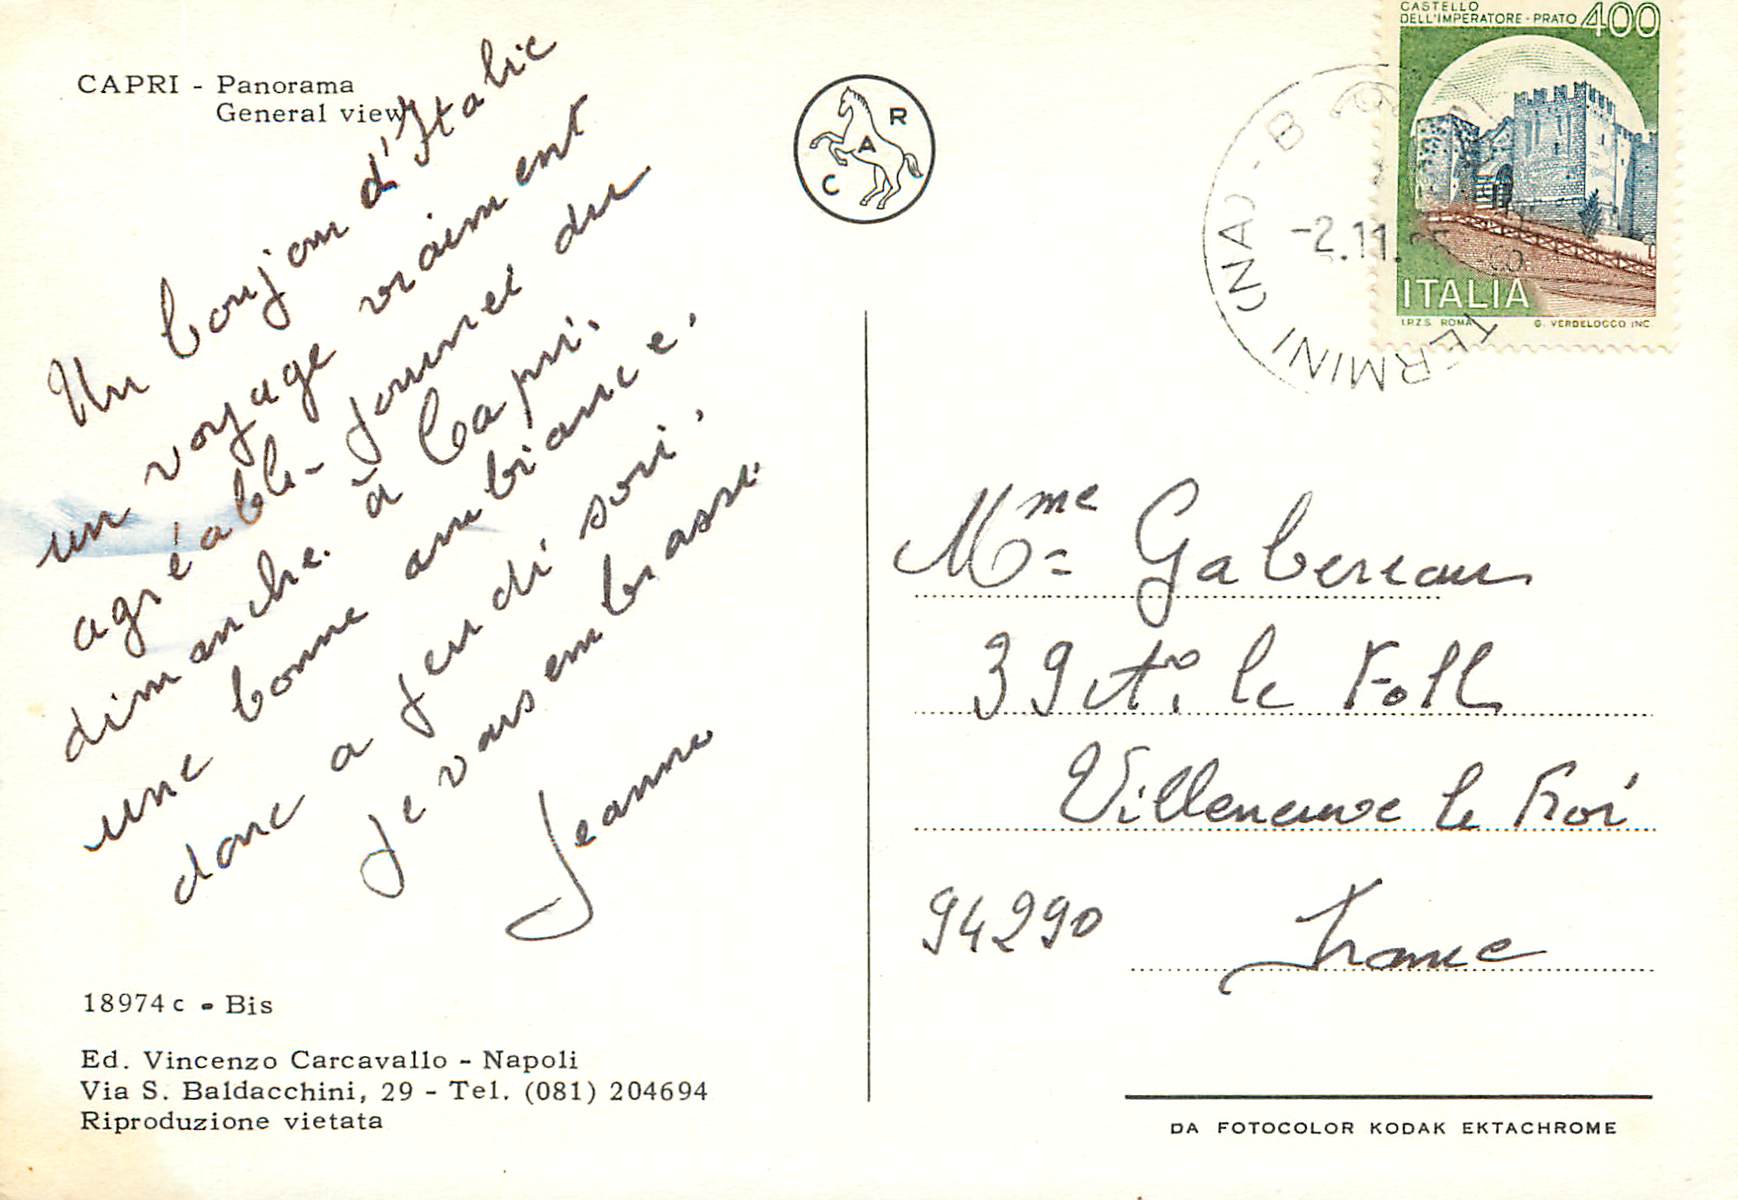 CAPRI - Panorama
General view
Un bonjour d'Italie
un voyage vraiment
agréable - journée du
dimanche à Capri.
une bonne ambiance.
donc a jeudi soir.
Je vous embrasse
Jeanne
18974 c - Bis
Ed. Vincenzo Carcavallo - Napoli
Via S. Baldacchini, 29 - Tel. (081) 204694
Riproduzione vietata
C A R
CASTELLO
DELL'IMPERATORE - PRATO 400
ITALIA
I.P.Z.S. ROMA G. VERDELOCCO INC.
TERMINI (NA) - B
-2.11.
Mme Gabereau
39 At. le Foll
Villeneuve le Roi
94290 France
DA FOTOCOLOR KODAK EKTACHROME